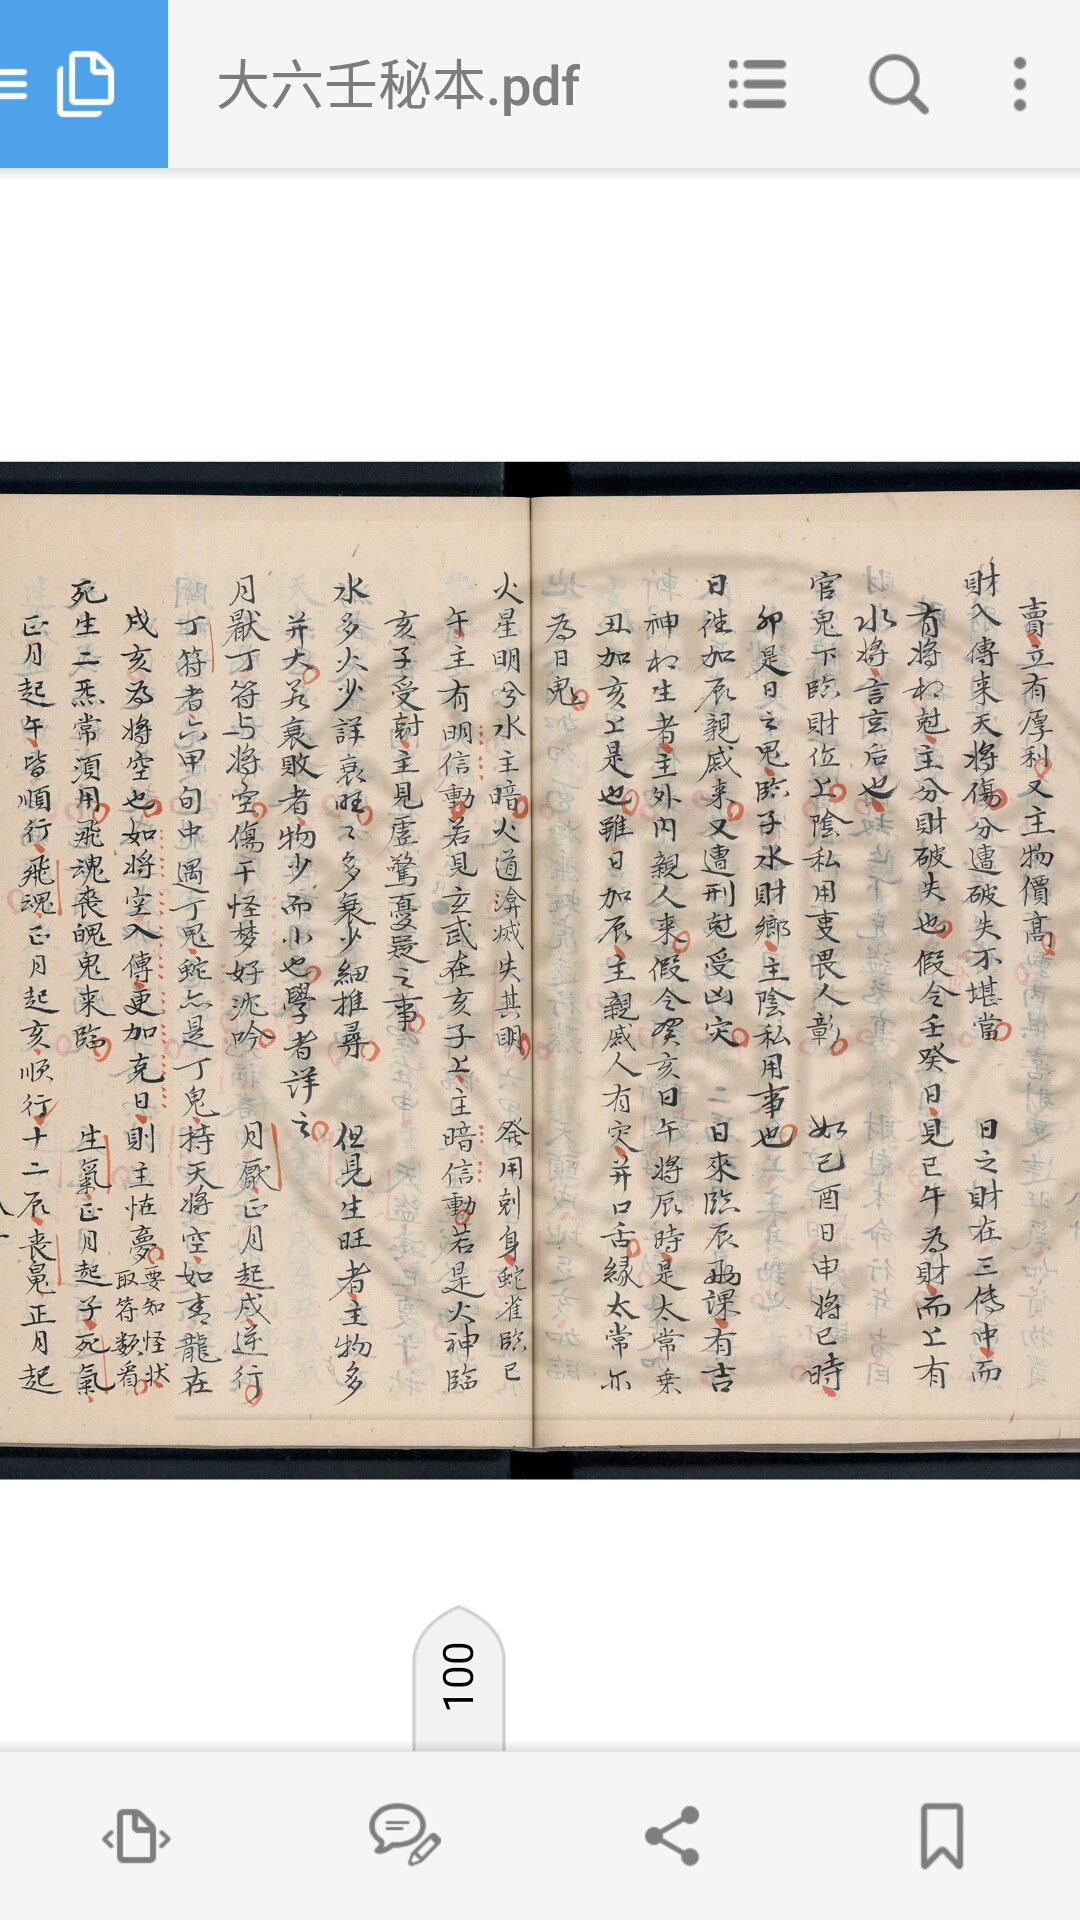 大六壬秘本.pdf
賣立有厚利又主物價高
財入傳来天將傷分遭破失不堪當 日之財在三傳中而
有將相尅主分財破失也假令壬癸日見巳午為財而上有
水將言玄后也
官鬼下臨財位上陰私用叓畏人彰 如己酉日申將巳時
卯是日之鬼臨子水財鄉主陰私用事也
日徃加辰親戚来又遭刑尅受凶灾 二日來臨辰為課有吉
神相生者主外内親人来假令癸亥日午將辰時是太常乗
丑加亥上是也雖日加辰主親戚人有灾并口舌縁太常尓
為日鬼
火星明兮水主暗火道渰滅失其明 發用剋身蛇雀臨巳
午主有明信動若見玄武在亥子上主暗信動若是火神臨
亥子受尅主見虛驚憂疑之事
水多火少詳衰旺旺多衰少細推尋 但見生旺者主物多
并大若衰敗者物少而小也學者詳之
月厭丁符与將空傷干怪梦好沉吟 月厭正月起戌逆行
丁符者六甲旬中遇丁鬼蛇亦是丁鬼持天將空如青龍在
戌亥為將空也如將空入傳更加克日則主怪夢要知怪状
取符数看
死生二炁常須用飛魂喪魄鬼来臨 生氣正月起子死氣
正月起午皆順行飛魂正月起亥順行十二辰喪鬼正月起
100